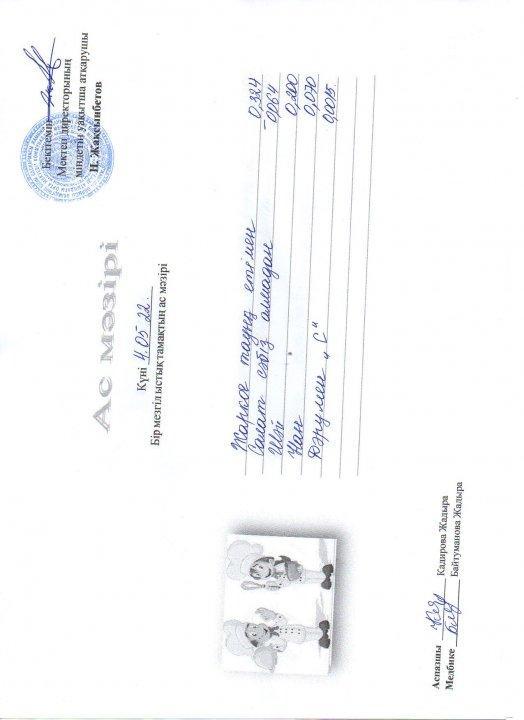 Бекітемін
Мектеп директорының
міндетін уақытша атқарушы
Н. Жақсынбетов
Ас мәзірі
Күні 4.05 22.
Бір мезгіл ыстық тамақтың ас мәзірі
Жаркое тауық етімен 0,324
Салат сәбіз алмадан 0,064
Шәй 0,200
Нан 0,070
Дәрумен „С“ 0,0015
Аспазшы Кадирова Жадыра
Медбике Байтуманова Жадыра